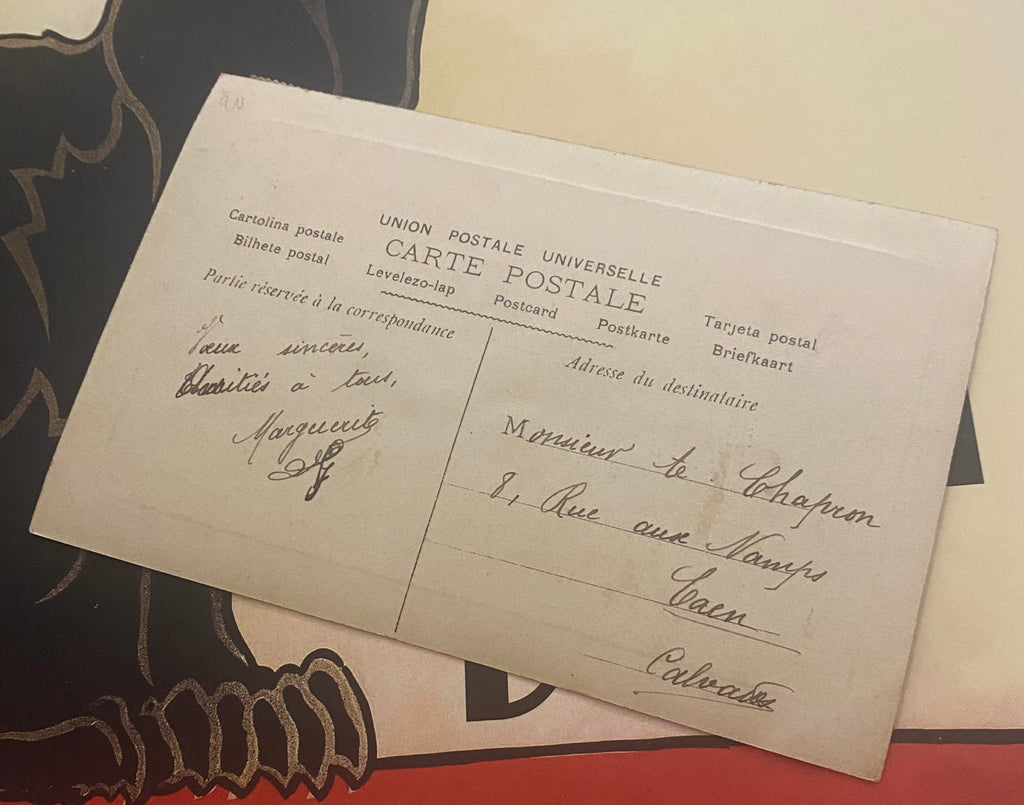 UNION POSTALE UNIVERSELLE
CARTE POSTALE
Cartolina postale
Bilhete postal
Levelezo-lap
Postcard
Postkarte
Tarjeta postal
Briefkaart
Partie réservée à la correspondance
Vœux sincères,
Amitiés à tous,
Marguerite
Adresse du destinataire
Monsieur le Chapron
8, Rue aux Namps
Caen
Calvados